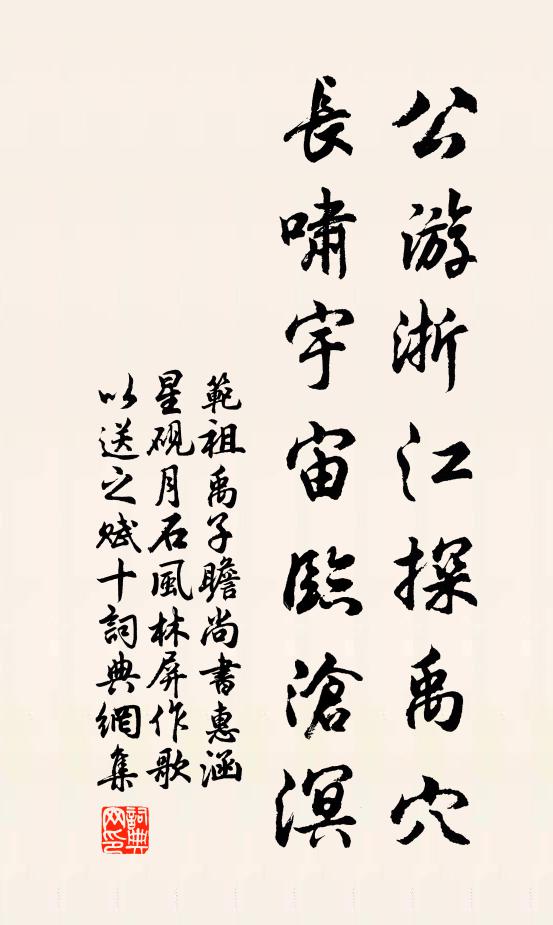 公游浙江探禹穴
長嘯宇宙臨滄溟
範祖禹子瞻尚書惠涵
星硯月石風林屏作歌
以送之賦十詞典網集
詞典網印